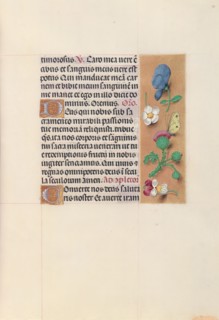 timorosus V. Caro mea vere ē
cibus et sanguis meus vere est
potus Qui manducat meā car
nem et bibit meum sanguinē in
me manet et ego in illo dicit do
minus. Oremus. Oro.
Deus qui nobis sub sa
cramento mirabili passionis
tue memoriā reliquisti. tribue
qs. ita nos corporis et sāguinis
tui sacra misteria venerari ut tu
e redemptionis fructū in nobis
iugiter senciamus. Qui vivis et
regnas omnipotens deus ī secu
la seculorum amen. Ad cpletori
Converte nos deus saluta
ris noster Et averte iram